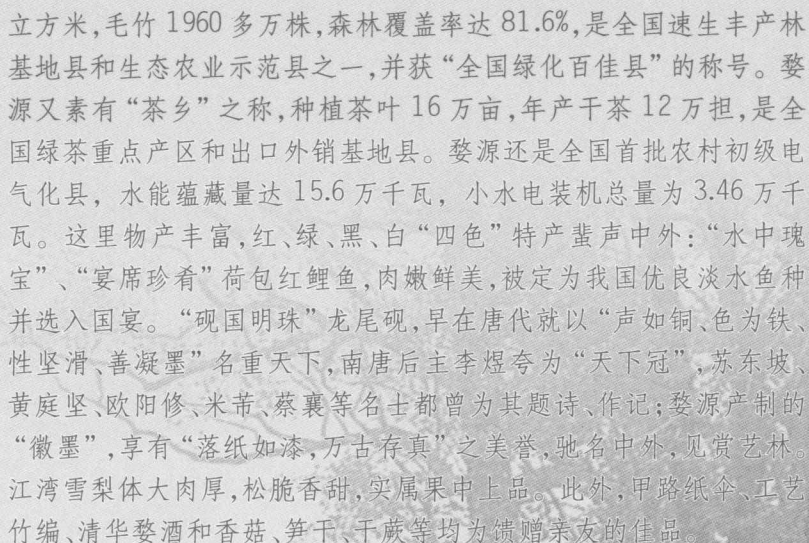 立方米,毛竹 1960 多万株,森林覆盖率达 81.6%,是全国速生丰产林
基地县和生态农业示范县之一,并获“全国绿化百佳县”的称号。婺
源又素有“茶乡”之称,种植茶叶 16 万亩,年产干茶 12 万担,是全
国绿茶重点产区和出口外销基地县。婺源还是全国首批农村初级电
气化县, 水能蕴藏量达 15.6 万千瓦, 小水电装机总量为 3.46 万千
瓦。这里物产丰富,红、绿、黑、白“四色”特产蜚声中外:“水中瑰
宝”、“宴席珍肴”荷包红鲤鱼,肉嫩鲜美,被定为我国优良淡水鱼种
并选入国宴。“砚国明珠”龙尾砚,早在唐代就以“声如铜、色为铁、
性坚滑、善凝墨”名重天下,南唐后主李煜夸为“天下冠”,苏东坡、
黄庭坚、欧阳修、米芾、蔡襄等名士都曾为其题诗、作记;婺源产制的
“徽墨”,享有“落纸如漆,万古存真”之美誉,驰名中外,见赏艺林。
江湾雪梨体大肉厚,松脆香甜,实属果中上品。此外,甲路纸伞、工艺
竹编、清华婺酒和香菇、笋干、干蕨等均为馈赠亲友的佳品。